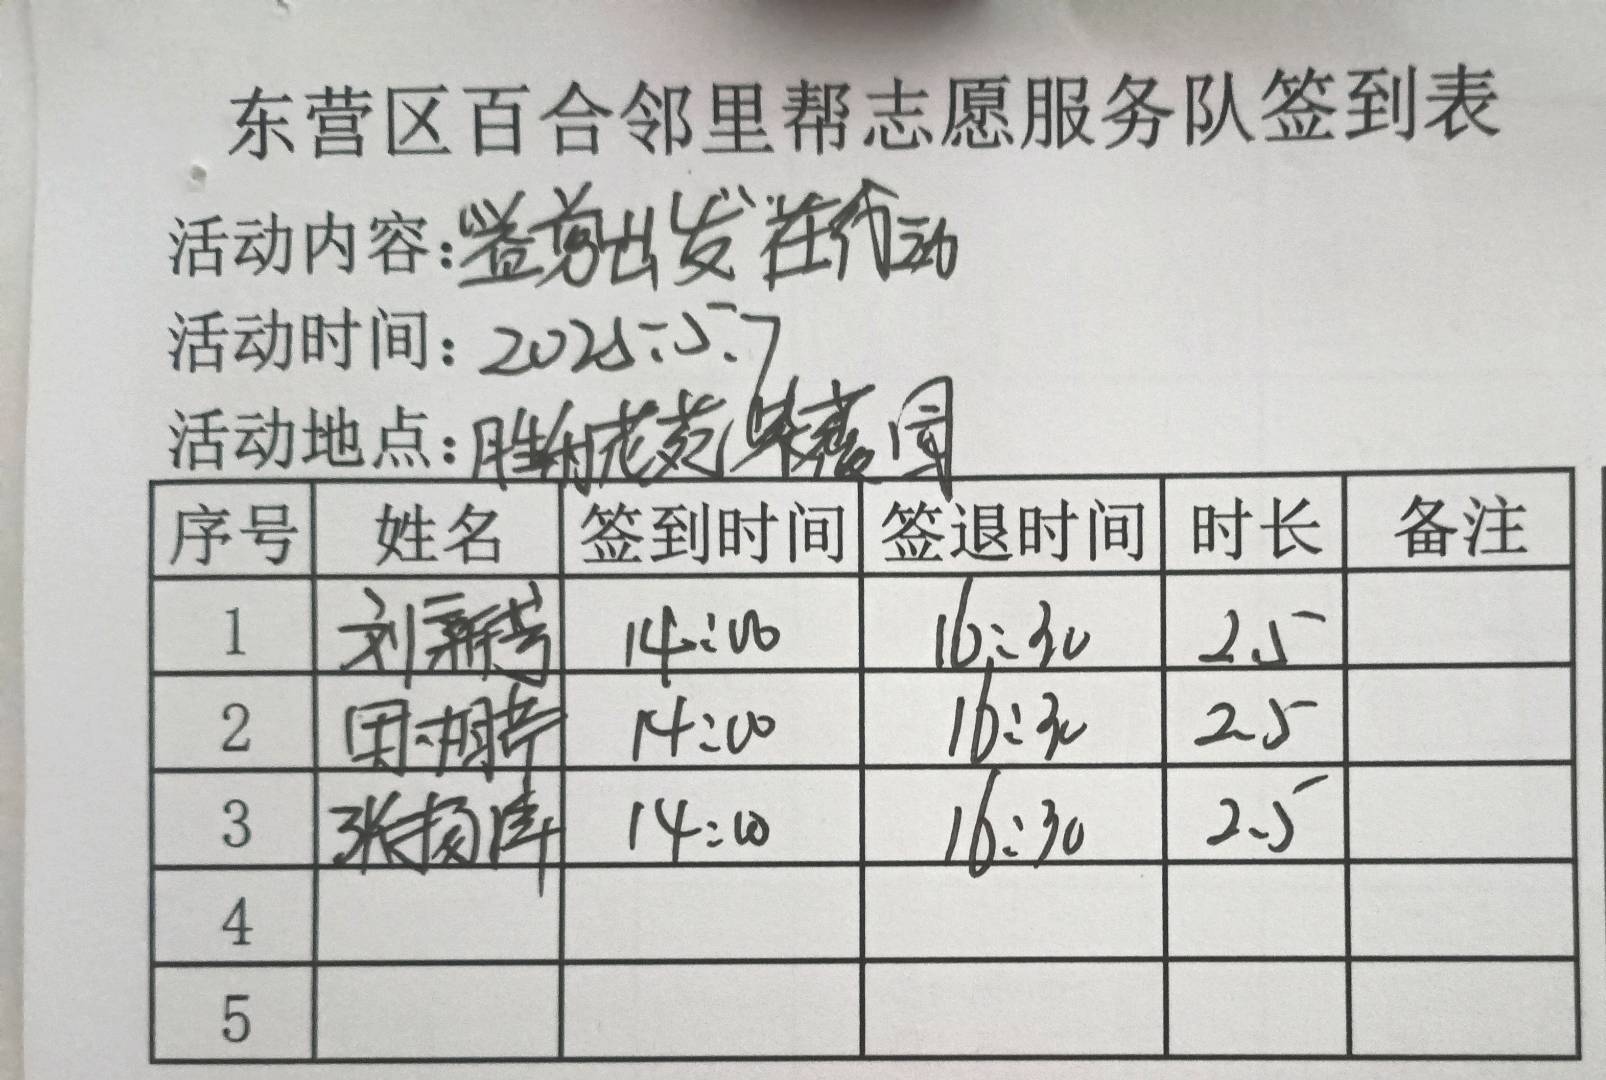 东营区百合邻里帮志愿服务队签到表
活动内容:益剪出发 在行动
活动时间:2025.5.7
活动地点:胜利花苑
序号 姓名 签到时间 签退时间 时长 备注
1 刘新芳 14:00 16:30 2.5
2 14:00 16:30 2.5
3 张扬 14:00 16:30 2.5
4
5